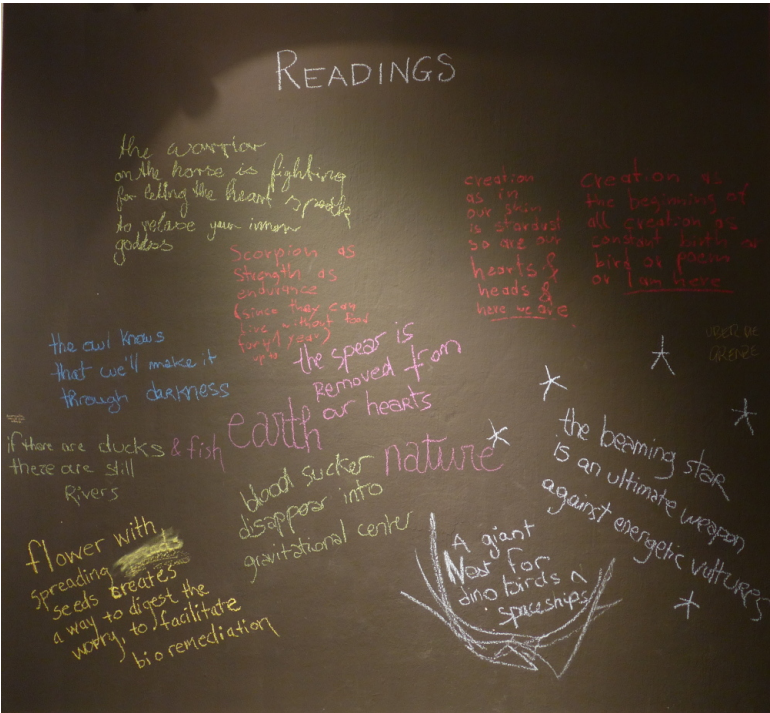 READINGS
the warrior
on the horse is fighting
for letting the heart speak
to release your inner
goddess
Scorpion as
strength as
endurance
(since they can
live without food
for 1 year)
upto
creation
as in
our skin
is stardust
so are our
hearts &
heads &
here we are
Creation as
the beginning of
all creation as
constant birth as
bird or poem
or I am here
the owl knows
that we'll make it
through darkness
the spear is
removed from
our hearts
if there are ducks & fish
there are still
Rivers
earth
nature
blood sucker
disappear into
gravitational center
the beaming star
is an ultimate weapon
against energetic vultures
flower with
spreading
seeds creates
a way to digest the
worry, to facilitate
bioremediation
A giant
Nest for
dino birds n
spaceships